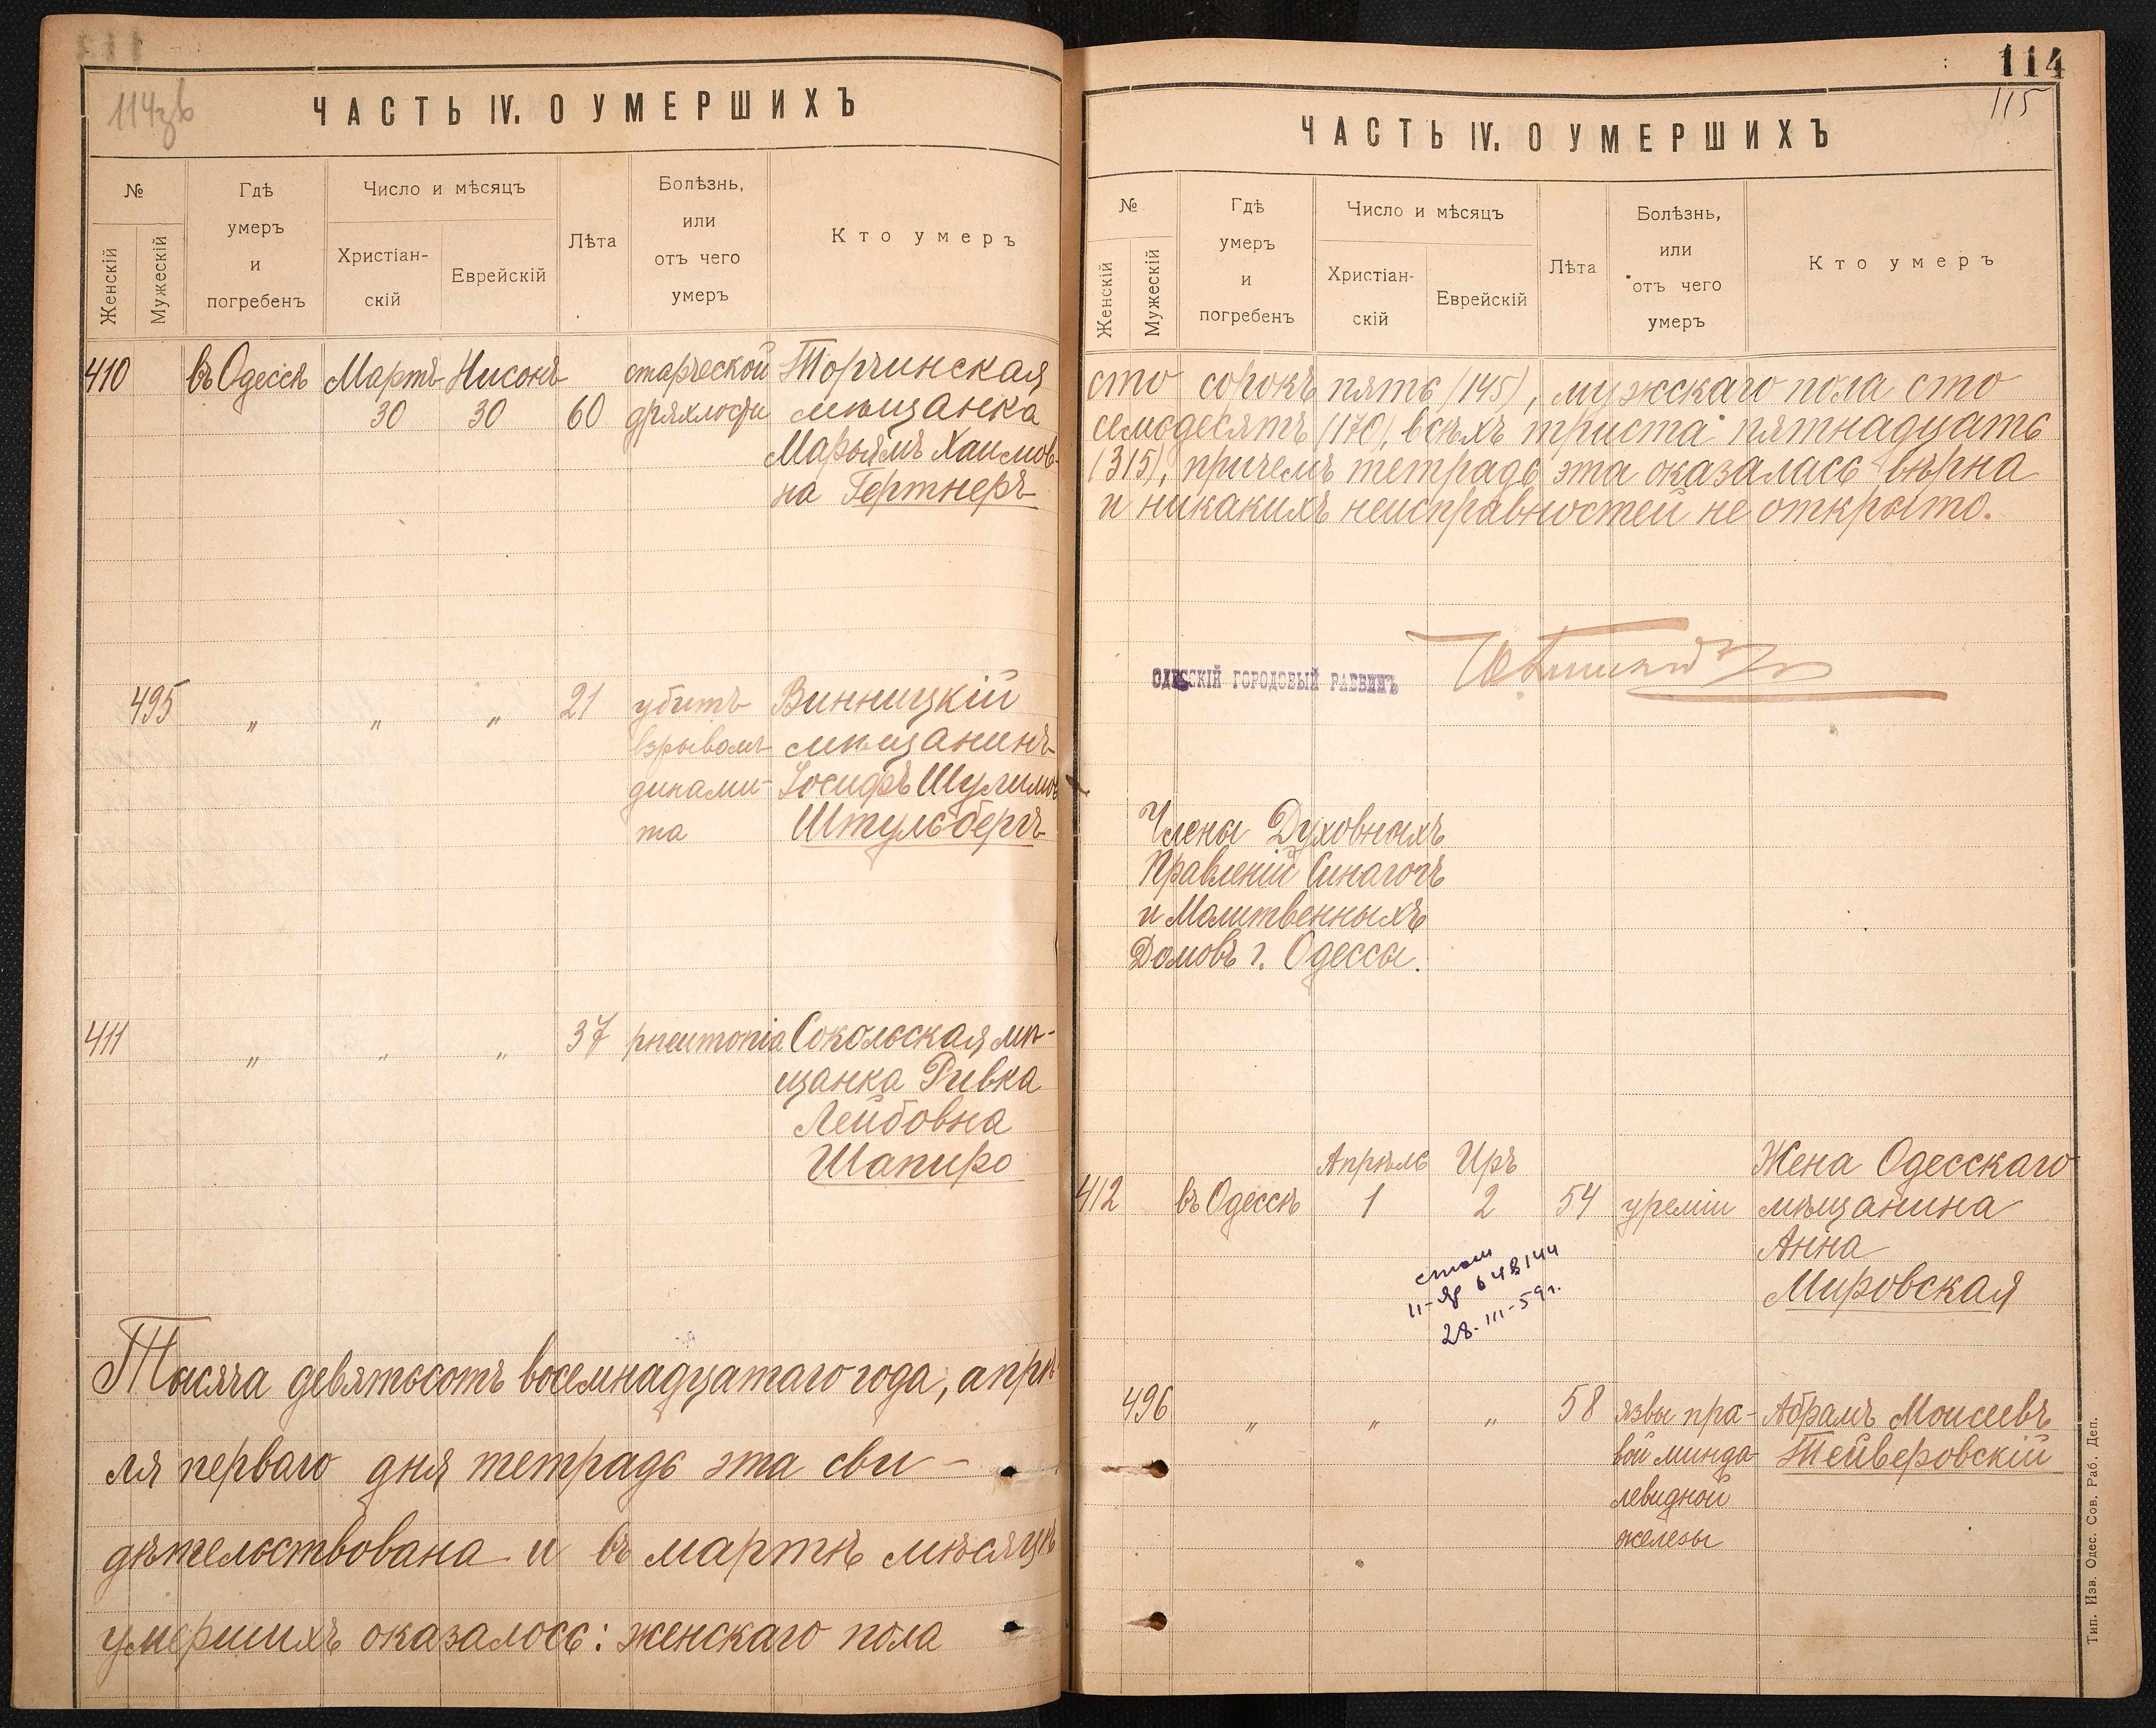 114зв
ЧАСТЬ IV. О УМЕРШИХЪ
№
Женскій
Мужескій
Гдѣ
умеръ
и
погребенъ
Число и мѣсяцъ
Христіан-
скій
Еврейскій
Лѣта
Болѣзнь,
или
отъ чего
умеръ
Кто умеръ
410 въ Одессѣ Мартъ Нисонъ старческой Торчинская
30 30 60 дряхлости мѣщанка
Марьямъ Хаимов-
на Гертнеръ
495 " " " 21 убитъ Винницкій
взрывомъ мѣщанинъ
динами- Іосифъ Шулимов
та Штульбергъ
411 " " " 37 pneumonia Сокольская мѣ-
щанка Ривка
Лейбовна
Шапиро
Тысяча девятьсотъ восемнадцатаго года, апрѣ
ля перваго дня тетрадь эта сви-
дѣтельствована и въ мартѣ мѣсяцѣ
умершихъ оказалось: женскаго пола
114
115
ЧАСТЬ IV. О УМЕРШИХЪ
№
Женскій
Мужескій
Гдѣ
умеръ
и
погребенъ
Число и мѣсяцъ
Христіан-
скій
Еврейскій
Лѣта
Болѣзнь,
или
отъ чего
умеръ
Кто умеръ
сто сорокъ пять (145), мужскаго пола сто
семьдесятъ (170), всѣхъ триста пятнадцать
(315), причемъ тетрадь эта оказалась вѣрна
и никакихъ неисправностей не открыто.
ОДЕССКІЙ ГОРОДОВЫЙ РАВВИНЪ
Члены Духовныхъ
Правленій Синагогъ
и Молитвенныхъ
Домовъ г. Одессы.
Апрѣль Иръ Жена Одесскаго
412 въ Одессѣ 1 2 54 уреміи мѣщанина
Анна
Мировская
648144
28-III-59г.
496 " " " 58 язвы пра- Абрамъ Моисеевъ
вой минда- Тейверовскій
левидной
железы
Тип. Изв. Одес. Сов. Раб. Деп.